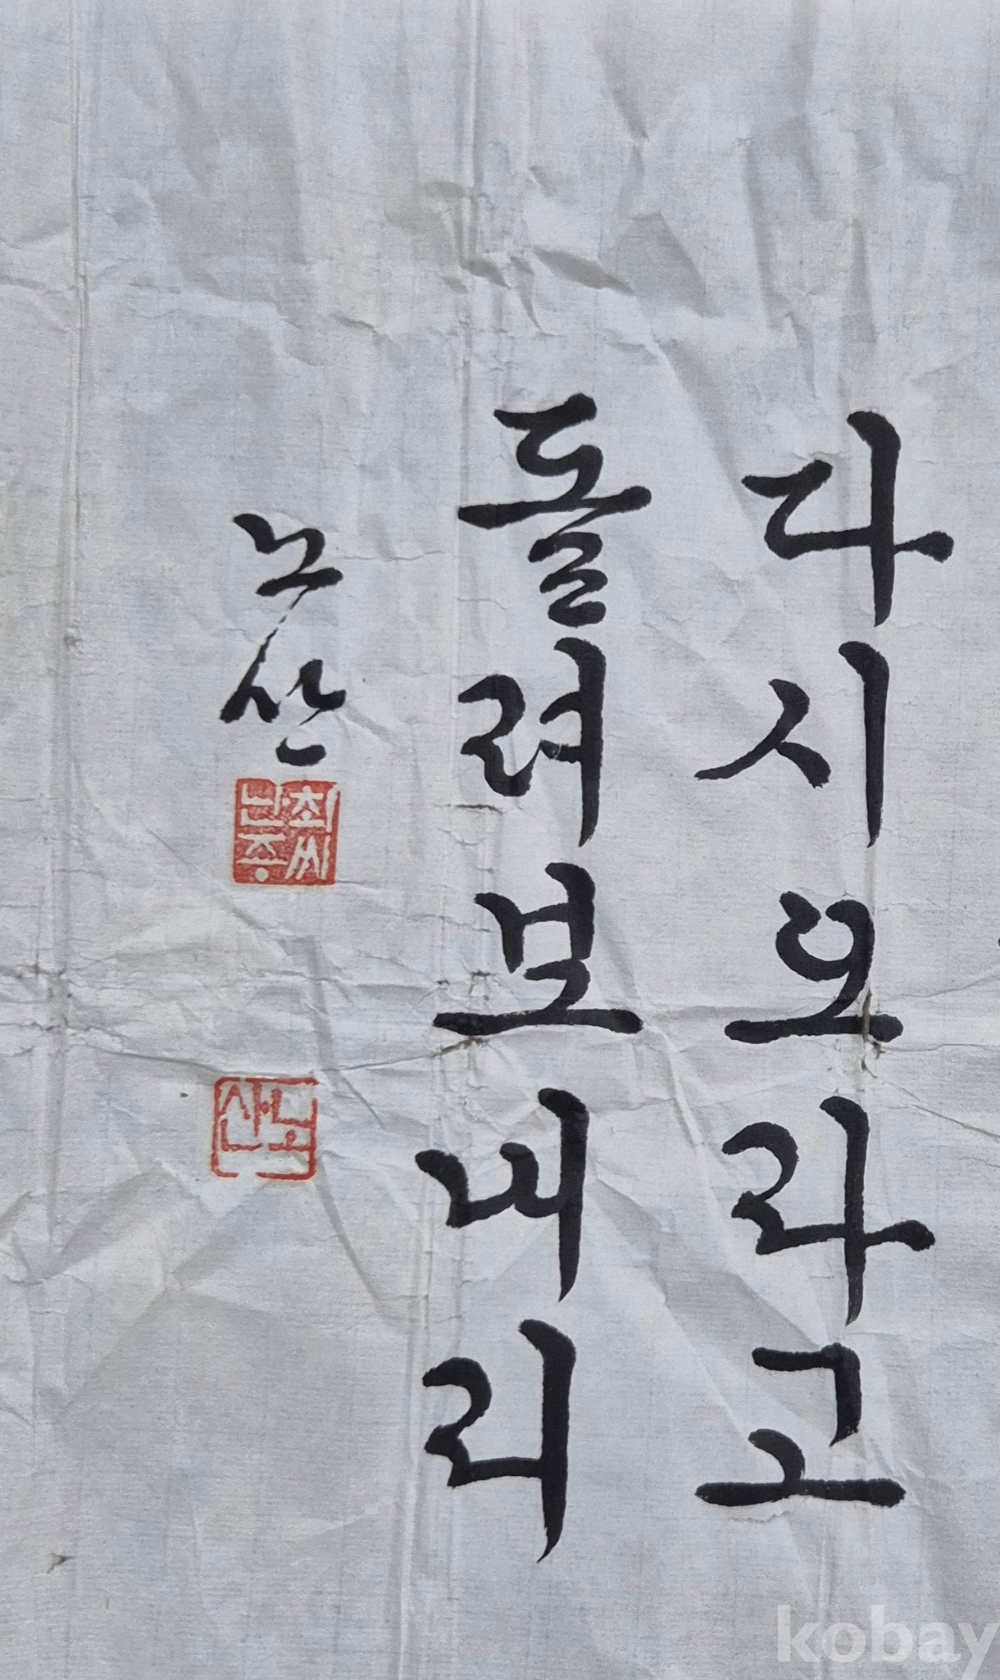 다시오라고
돌려보내리
노산
최씨
난종
노산
kobay